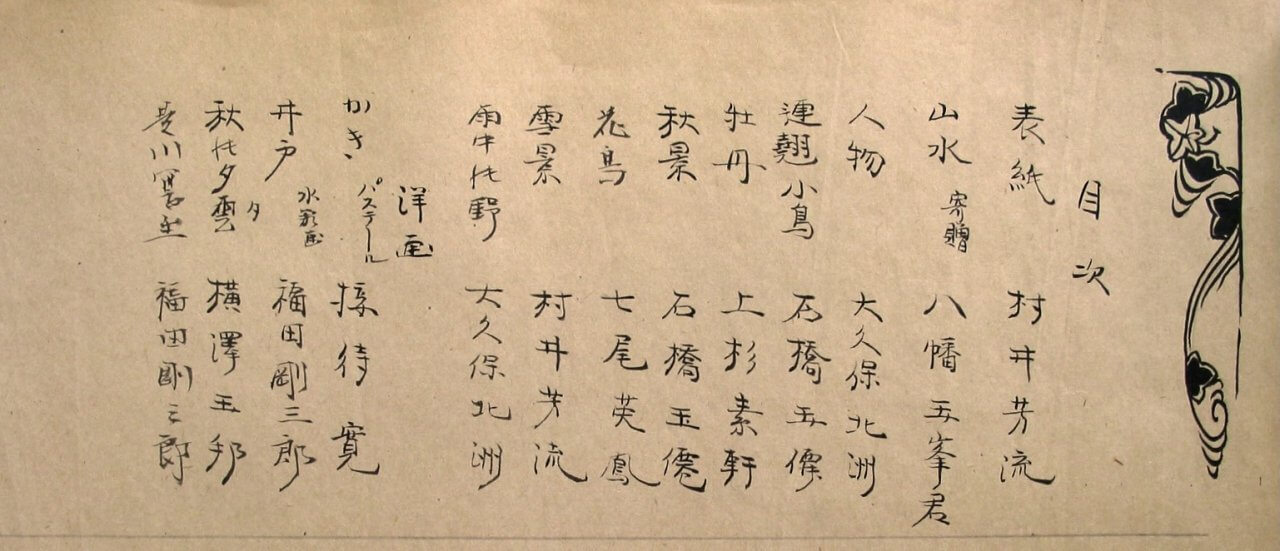 目次
表紙 村井芳流
山水 寄贈 八幡五峯君
人物 大久保北洲
連翹小鳥 石橋玉僊
牡丹 上杉素軒
秋景 石橋玉僊
花鳥 七尾英鳳
雪景 村井芳流
雨中の野 大久保北洲
洋画
かき パステール 接待寛
井戸 水彩画 福田剛三郎
秋の夕雲 〃 横澤玉邦
荒川 福田剛三郎